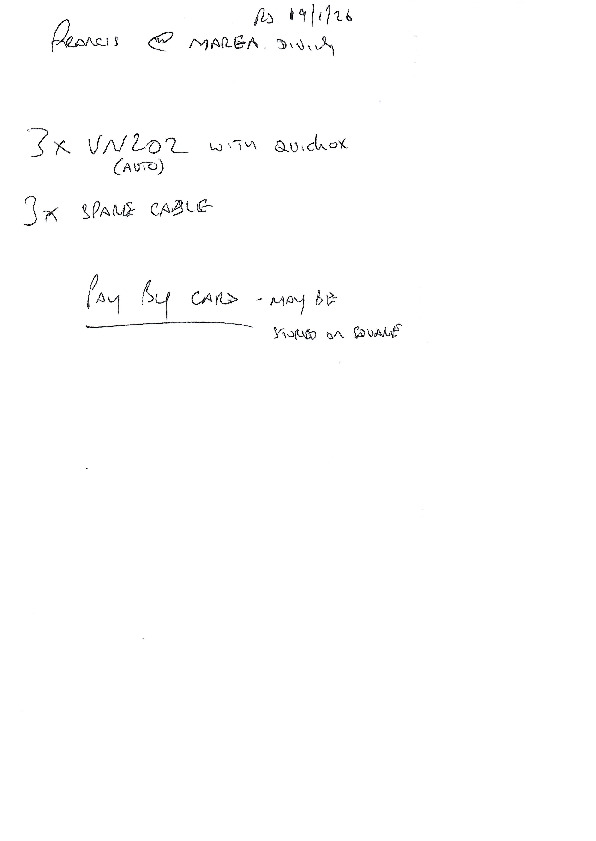 RS 19/1/26
Francis @ MAREA DIVING
3x VN202 with Quickox
(AUTO)
3x SPARE CABLE
PAY By CARD - MAY BE
STORED ON SQUARE